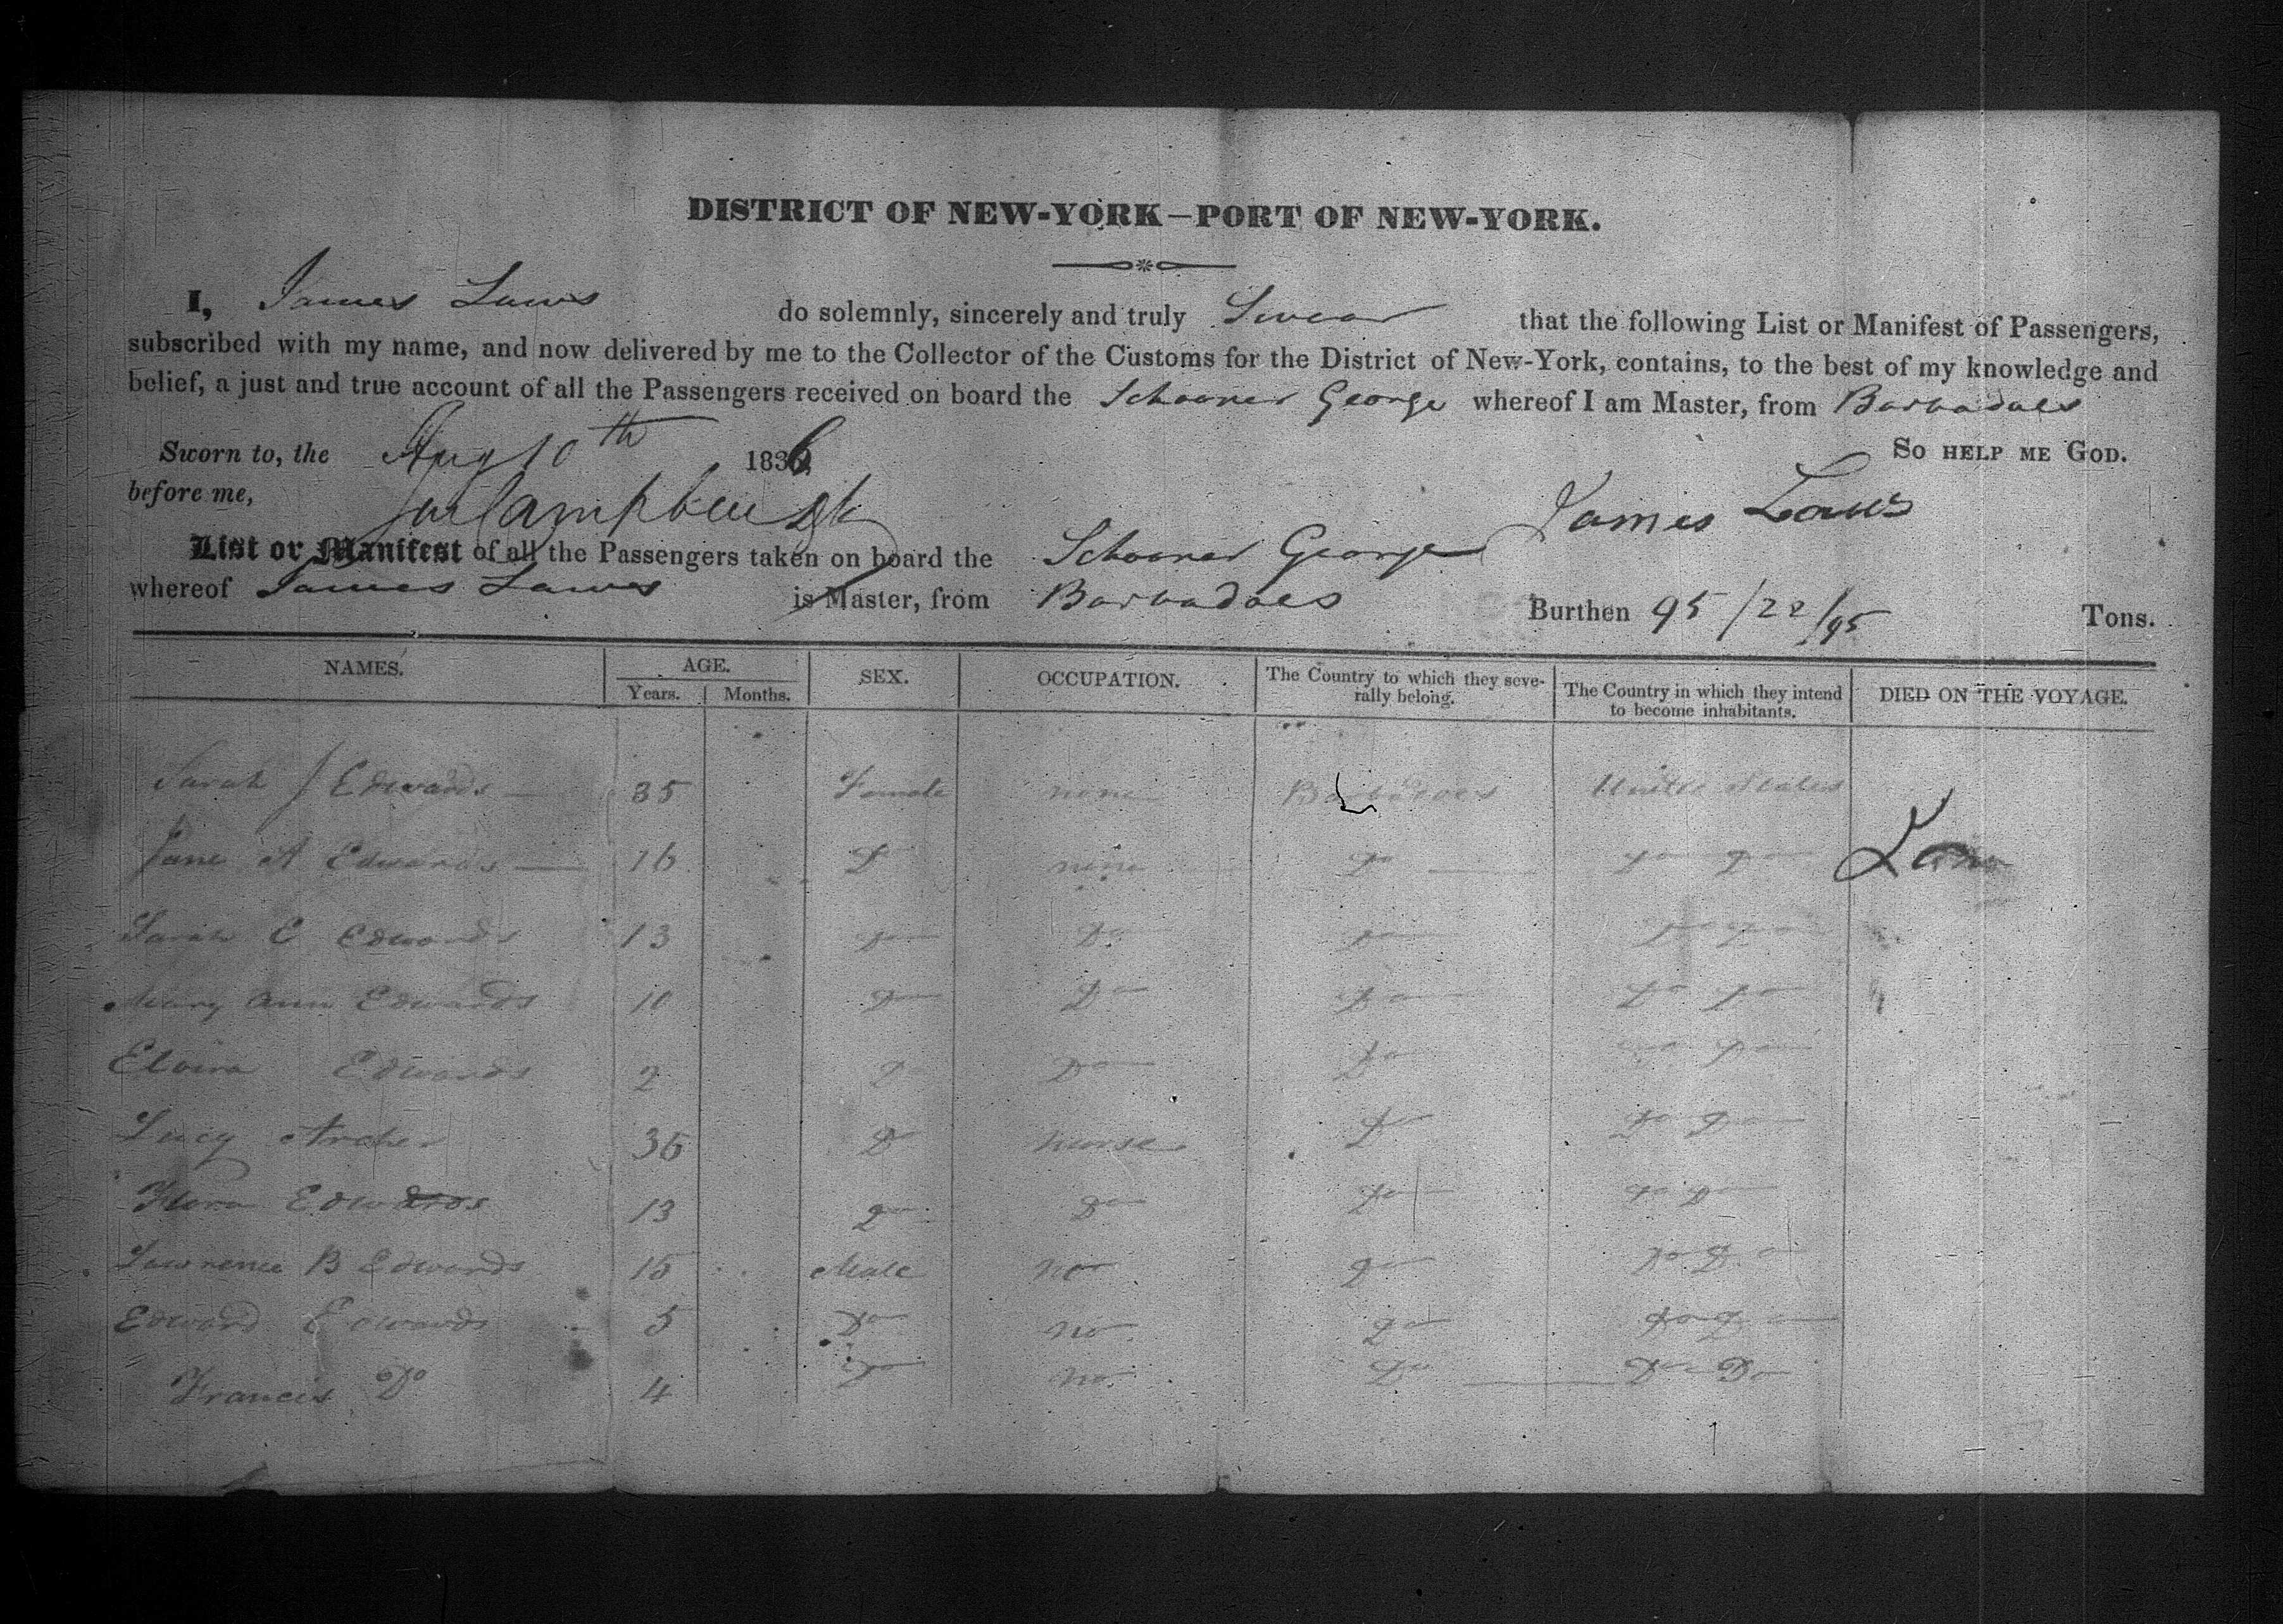 DISTRICT OF NEW-YORK—PORT OF NEW-YORK.
I, James Laws do solemnly, sincerely and truly Swear that the following List or Manifest of Passengers,
subscribed with my name, and now delivered by me to the Collector of the Customs for the District of New-York, contains, to the best of my knowledge and
belief, a just and true account of all the Passengers received on board the Schooner George whereof I am Master, from Barbadoes
Sworn to, the Aug 10th 1836 So HELP ME GOD.
before me, James Laws
List or Manifest of all the Passengers taken on board the Schooner George
whereof James Laws is Master, from Barbadoes Burthen 95/22/95 Tons.
NAMES. AGE. Years. Months. SEX. OCCUPATION. The Country to which they severally belong. The Country in which they intend to become inhabitants. DIED ON THE VOYAGE.
Sarah J Edwards — 35 Female none Barbadoes United States
Jane A Edwards — 16 Do none Do Do Do
Sarah E Edwards 13 Do Do Do Do Do
Mary Ann Edwards 10 Do Do Do Do Do
Elvira Edwards 2 Do Do Do Do Do
Lucy Archer 36 Do Nurse Do Do Do
Flora Edwards 13 Do Do Do Do Do
Lawrence B Edwards 15 Male no Do Do Do
Edward Edwards 5 Do no Do Do Do
Francis Do 4 Do no Do Do Do